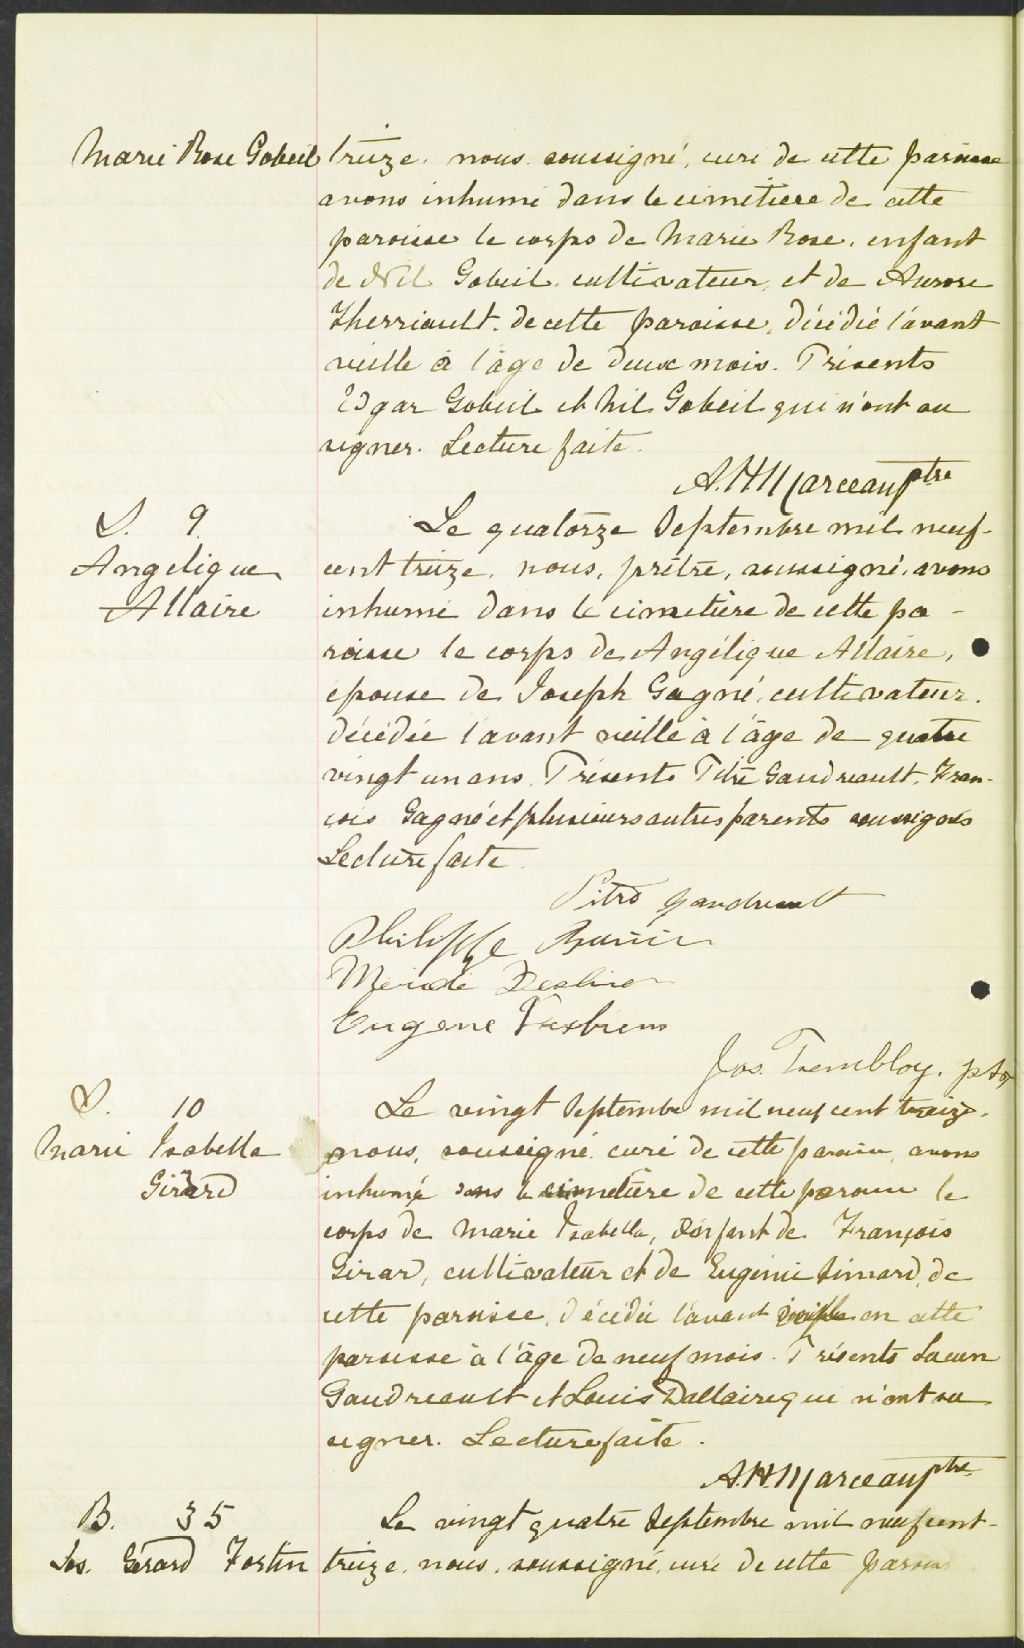 Marie Rose Gobeil treize. nous soussigné, curé de cette paroisse
avons inhumé dans le cimetière de cette
paroisse le corps de Marie Rose, enfant
de Nil Gobeil cultivateur, et de Aurore
Therriault. de cette paroisse, décédée l'avant
veille à l'âge de deux mois. Présents
Edgar Gobeil et Nil Gobeil qui n'ont su
signer. Lecture faite.
A. H Marceau ptre
S. 9 Le quatorze Septembre mil neuf-
Angelique cent treize, nous, prêtre, soussigné, avons
Allaire inhumé dans le cimetière de cette pa-
roisse le corps de Angélique Allaire,
épouse de Joseph Gagné, cultivateur.
décédée l'avant veille à l'âge de quatre
vingt un ans. Présents Pitre Gaudreault, Fran-
çois Gagné et plusieurs autres parents soussignés
Lecture faite.
Pitre Gaudreault
Philippe
Eugene
Jos. Tremblay. ptre
S. 10 Le vingt Septembre mil neuf cent treize.
Marie Isabella nous, soussigné, curé de cette paroisse, avons
Girard inhumé dans le cimetière de cette paroisse le
corps de Marie Isabella, enfant de François
Girard, cultivateur et de Eugénie Simard, de
cette paroisse, décédée l'avant veille en cette
paroisse à l'âge de neuf mois. Présents
Gaudreault et Louis Dallaire qui n'ont su
signer. Lecture faite.
A. H. Marceau ptre
B. 35 Le vingt quatre Septembre mil neuf cent-
Jos. Gérard Fortin treize, nous, soussigné, curé de cette paroisse